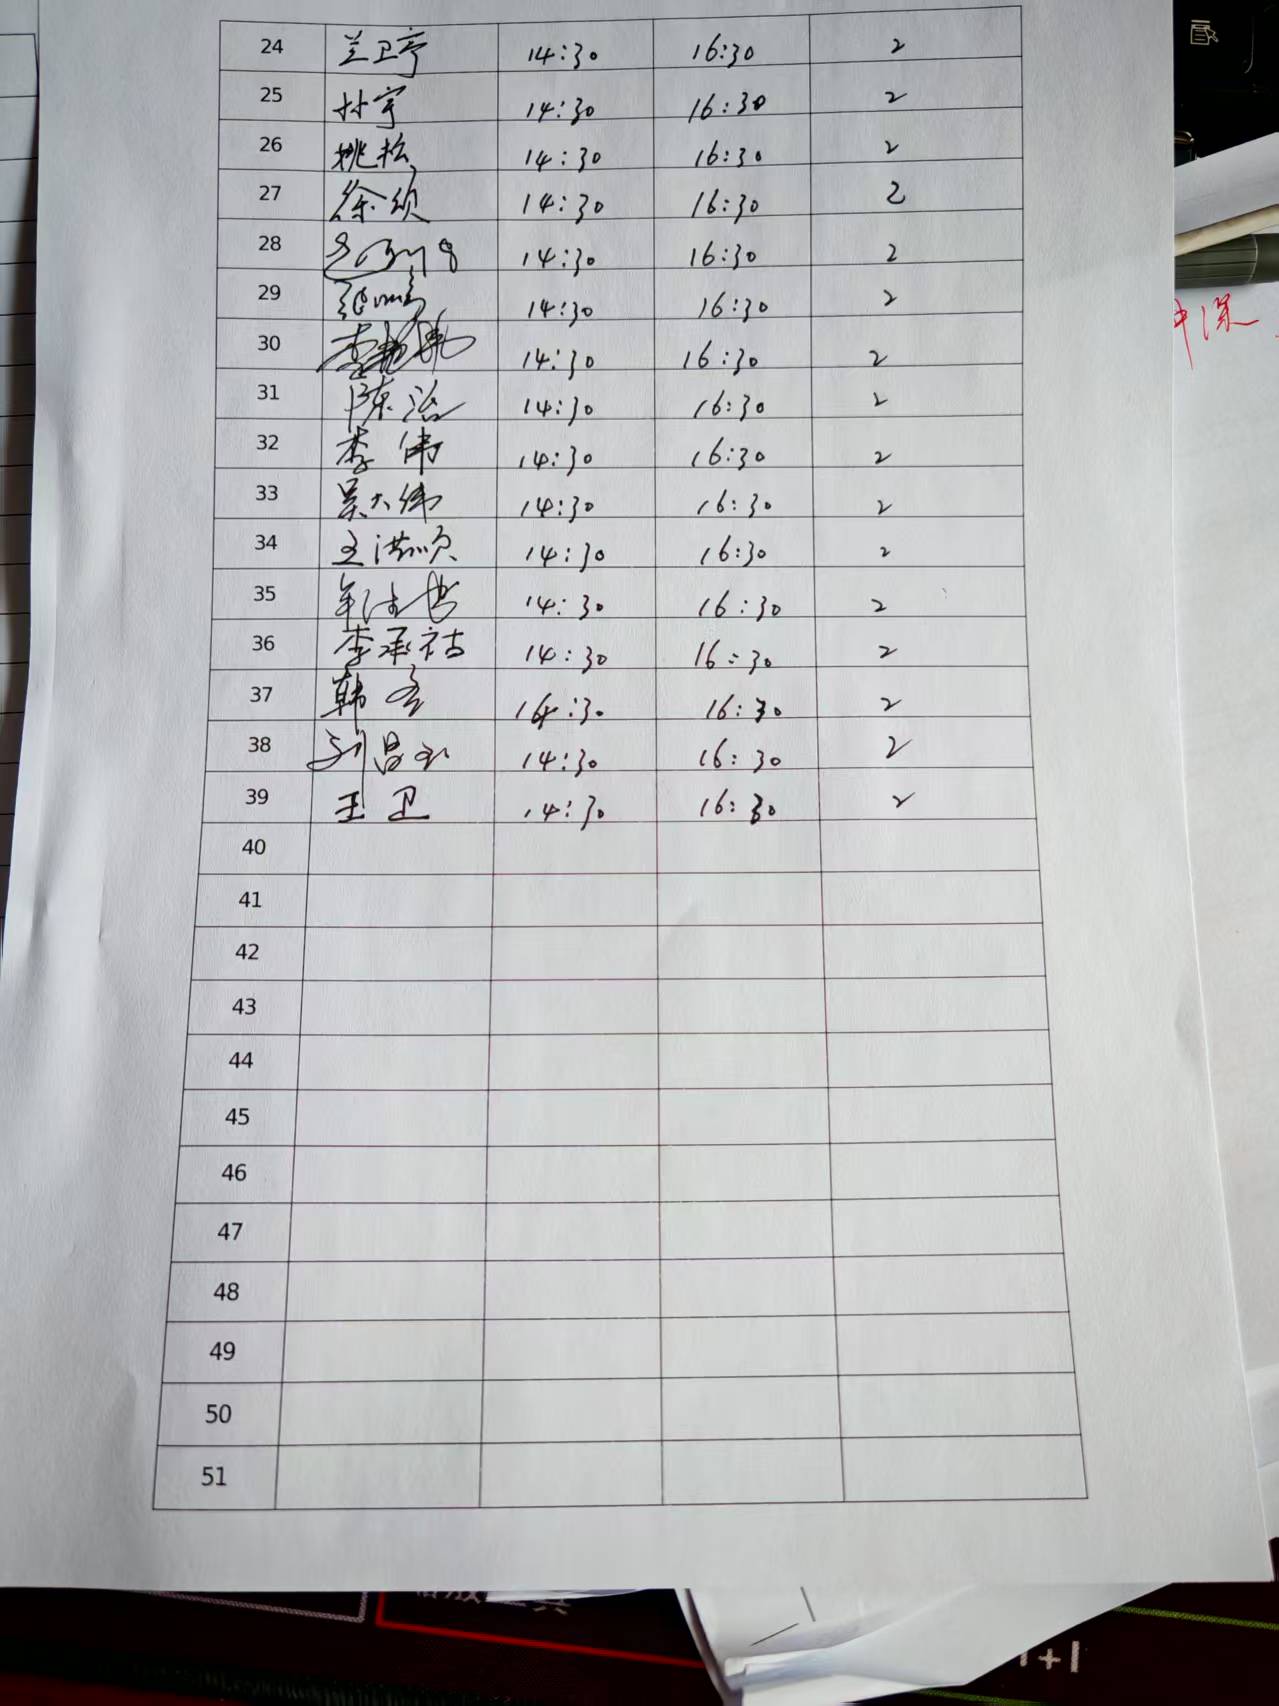 24 兰卫亭 14:30 16:30 2
25 林宇 14:30 16:30 2
26 姚松 14:30 16:30 2
27 徐欣 14:30 16:30 2
28 14:30 16:30 2
29 14:30 16:30 2
30 李 14:30 16:30 2
31 陈浩 14:30 16:30 2
32 李伟 14:30 16:30 2
33 吴大伟 14:30 16:30 2
34 王洪顺 14:30 16:30 2
35 14:30 16:30 2
36 李承祜 14:30 16:30 2
37 韩 14:30 16:30 2
38 刘昌 14:30 16:30 2
39 王卫 14:30 16:30 2
40
41
42
43
44
45
46
47
48
49
50
51